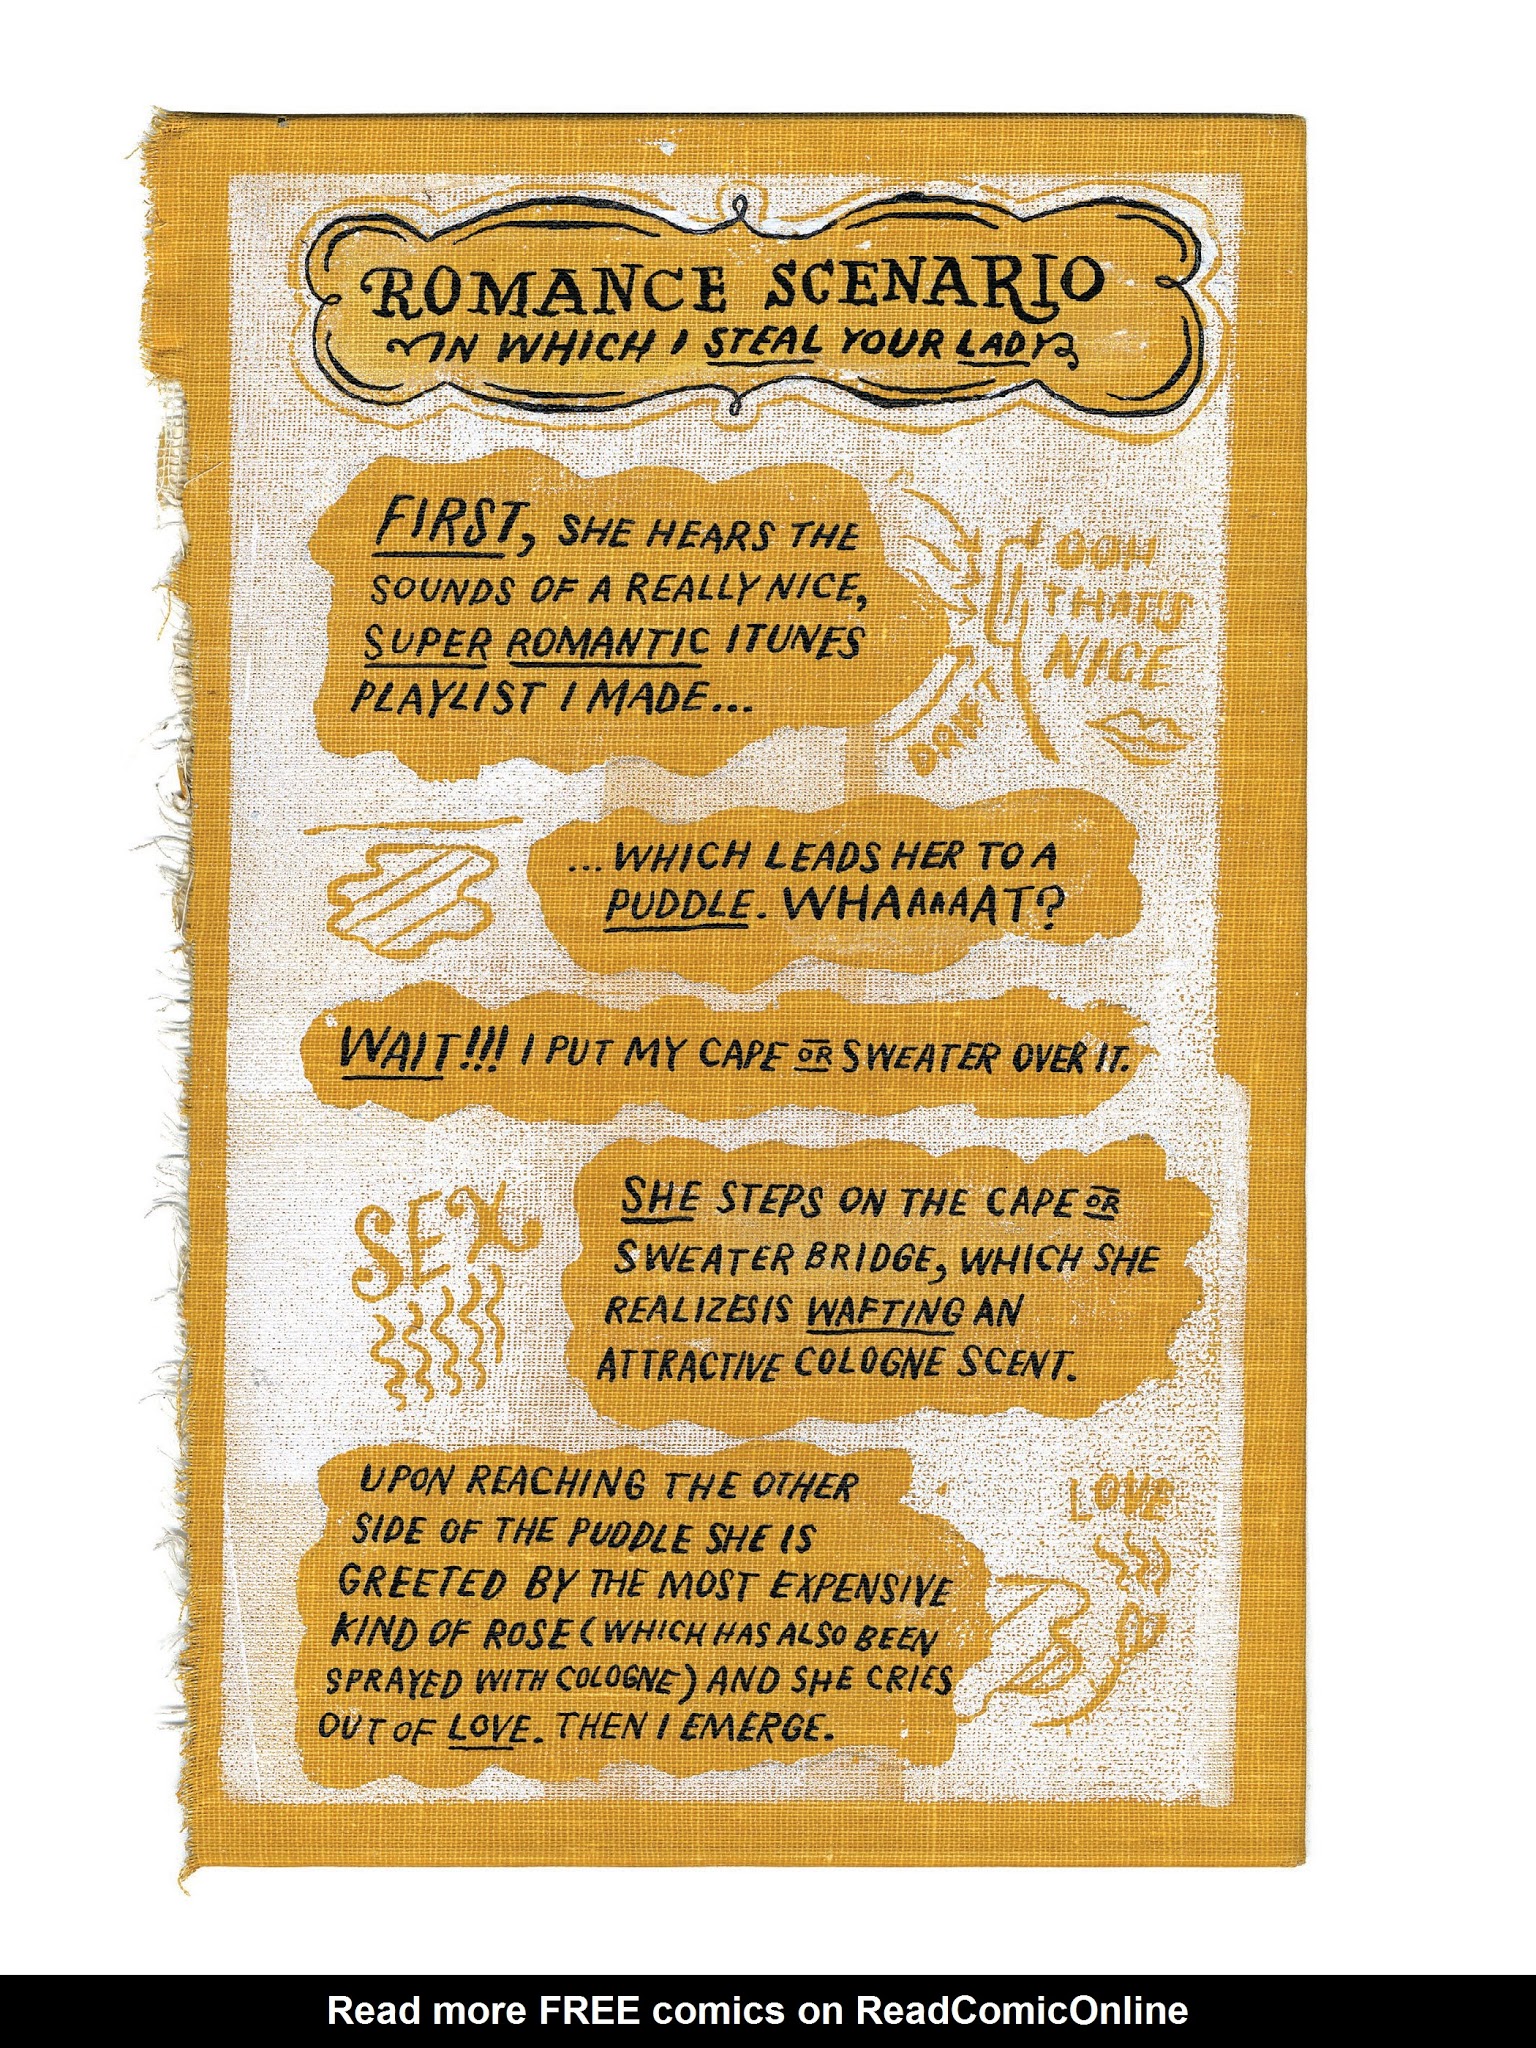 ROMANCE SCENARIO
IN WHICH I STEAL YOUR LADY
FIRST, SHE HEARS THE
SOUNDS OF A REALLY NICE,
SUPER ROMANTIC ITUNES
PLAYLIST I MADE...
OOH
THAT'S
NICE
DRIFT
...WHICH LEADS HER TO A
PUDDLE. WHAAAAAT?
WAIT!!! I PUT MY CAPE OR SWEATER OVER IT.
SEX
SHE STEPS ON THE CAPE OR
SWEATER BRIDGE, WHICH SHE
REALIZES IS WAFTING AN
ATTRACTIVE COLOGNE SCENT.
UPON REACHING THE OTHER
SIDE OF THE PUDDLE SHE IS
GREETED BY THE MOST EXPENSIVE
KIND OF ROSE (WHICH HAS ALSO BEEN
SPRAYED WITH COLOGNE) AND SHE CRIES
OUT OF LOVE. THEN I EMERGE.
LOVE
Read more FREE comics on ReadComicOnline